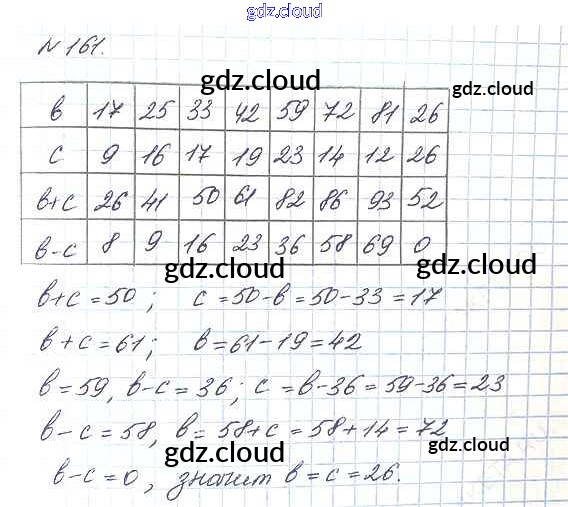 gdz.cloud
gdz.cloud
N 161.
gdz.cloud gdz.cloud
в 17 25 33 42 59 72 81 26
c 9 16 17 19 23 14 12 26
в+c 26 41 50 61 82 86 93 52
в-c 8 9 16 23 36 58 69 0
gdz.cloud gdz.cloud
в+c=50; c=50-в=50-33=17
в+c=61; в=61-19=42
в=59, в-c=36; c=в-36=59-36=23
в-c=58, в=58+c=58+14=72
gdz.cloud gdz.cloud
в-c=0, значит в=c=26.